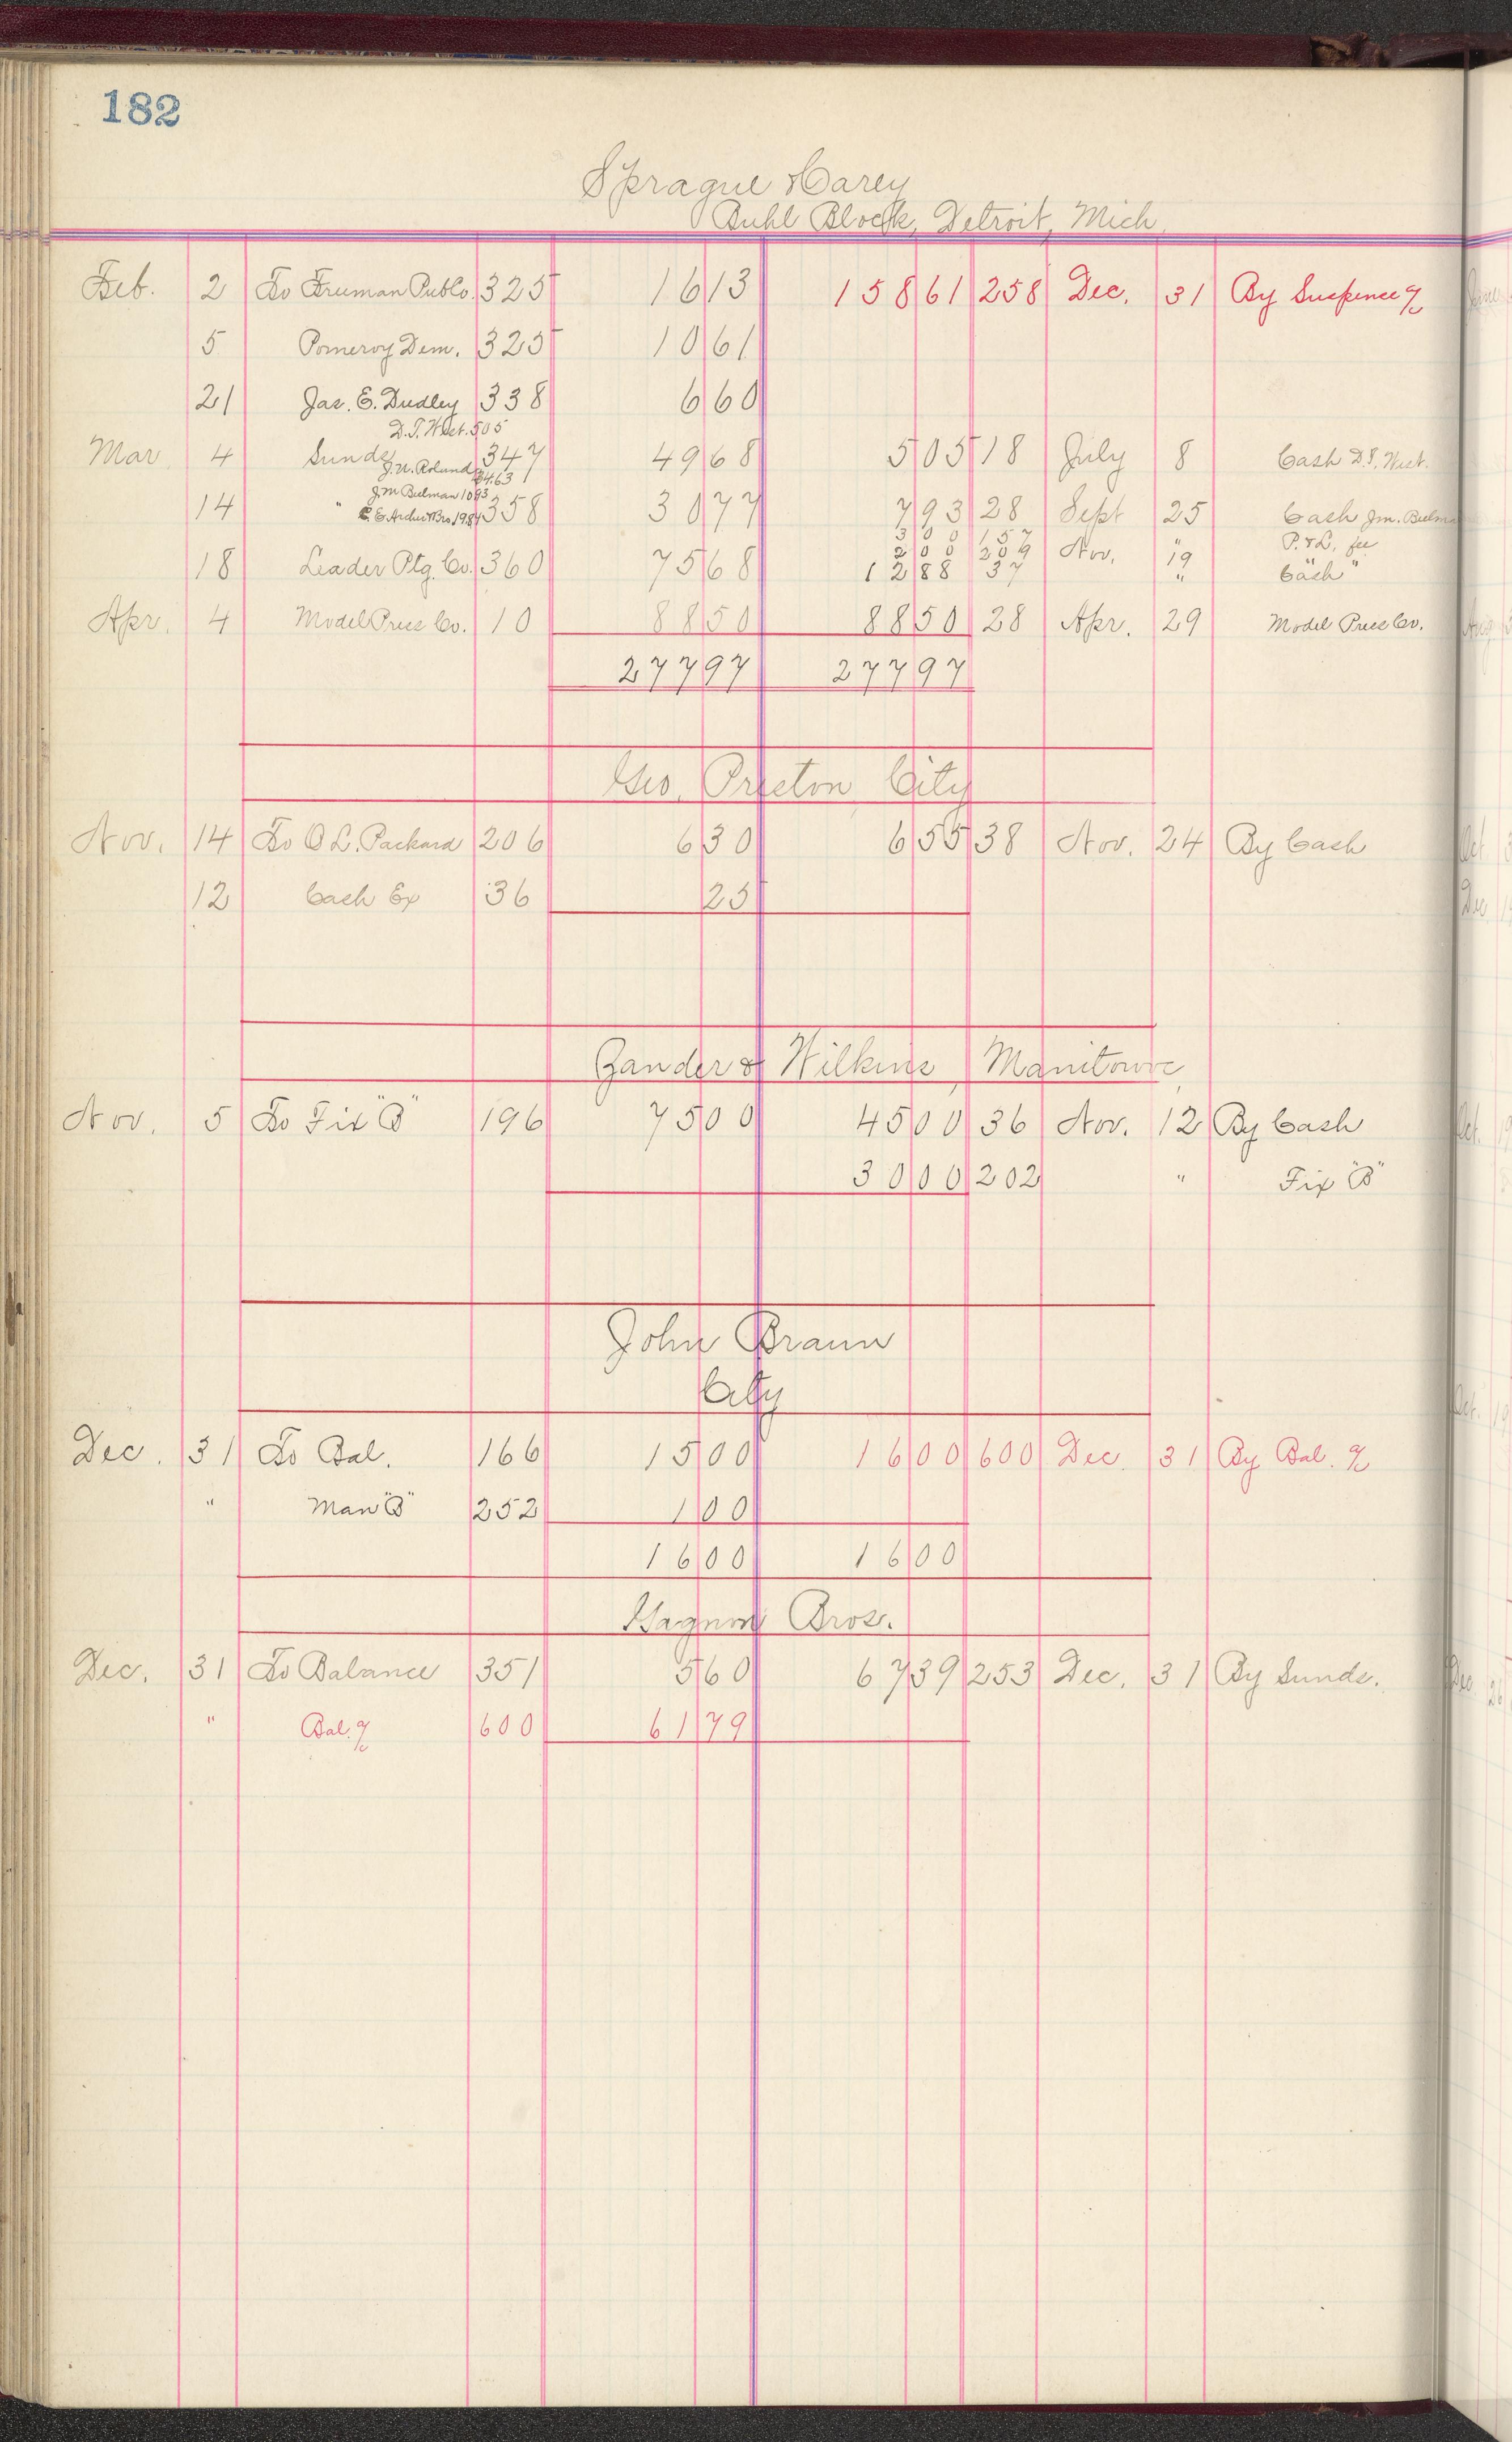 182
Sprague & Carey
Buhl Block, Detroit, Mich.
Feb. 2 To Truman Pub Co. 325 16 13 158 61 258 Dec. 31 By Suspence a/c
5 Pomeroy Dem. 325 10 61
21 Jas. E. Dudley 338 6 60
D. T. West. 505
Mar 4 Sunds 347 49 68 5 05 18 July 8 Cash D. T. West.
J. N. Roland 34.63
J. M. Bulman 10 93
14 " C. E. Archer & Bro 19.84 358 30 77 7 93 28 Sept 25 Cash Jm. Bulm
3 00 157 " P. & L. fee
18 Leader Ptg. Co. 360 75 68 2 00 209 Nov. 19
12 88 37 " Cash "
Apr. 4 Model Press Co. 10 88 50 88 50 28 Apr. 29 Model Press Co.
277 97 277 97
Geo. Preston City
Nov. 14 To O L. Packard 206 6 30 6 55 38 Nov. 24 By Cash
12 Cash Ex 36 25
Zander & Wilkins, Manitowoc,
Nov. 5 To Fix "B" 196 75 00 45 00 36 Nov. 12 By Cash
30 00 202 " Fix "B"
John Braun
City
Dec. 31 To Bal. 166 15 00 16 00 600 Dec. 31 By Bal. a/c
" Man "B" 252 1 00
16 00 16 00
Bros.
Dec. 31 To Balance 351 5 60 67 39 253 Dec. 31 By Sunds.
" Bal. a/c 600 61 79